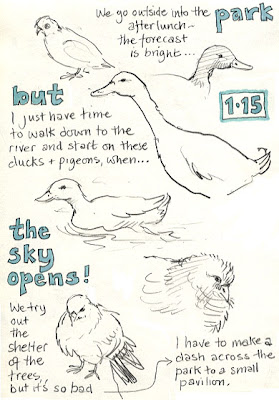 We go outside into the park
after lunch –
the forecast
is bright...
but
1·15
I just have time
to walk down to the
river and start on these
ducks + pigeons, when...
the
sky
opens!
We try
out
the
shelter
of the
trees,
but it's so bad
I have to make a
dash across the
park to a small
pavilion.